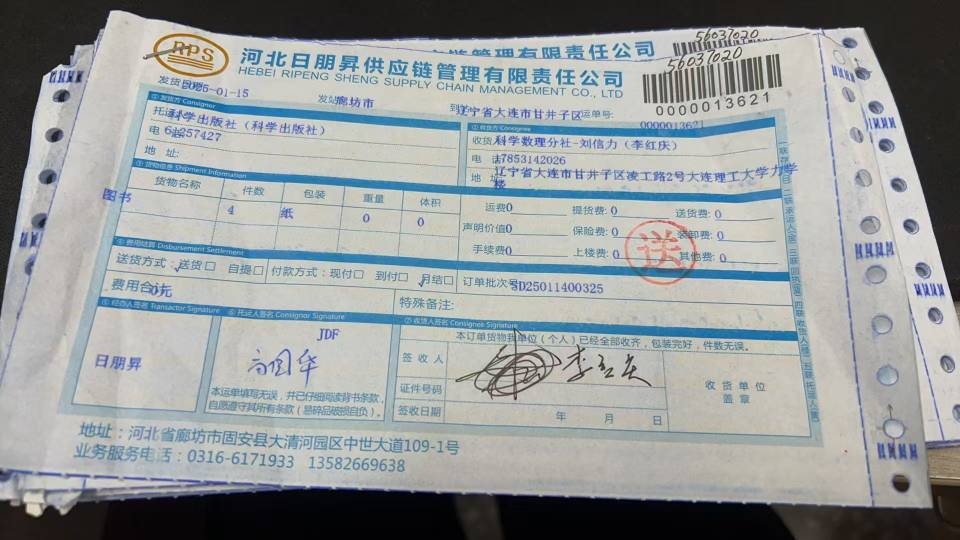 56037020
RPS
河北日朋昇供应链管理有限责任公司
56037020
HEBEI RIPENG SHENG SUPPLY CHAIN MANAGEMENT CO., LTD
0000013621
发货日期: 2025-01-15
发站: 廊坊市
到站: 辽宁省大连市甘井子区
运单号: 0000013621
① 发货方 Consignor
托运人: 科学出版社(科学出版社)
电 话: 64257427
地 址:
② 收货方 Consignee
收货人: 科学数理分社-刘信力(李红庆)
电 话: 17853142026
地 址: 辽宁省大连市甘井子区凌工路2号大连理工大学力学楼
③ 货物信息 Shipment Information
货物名称 件数 包装 重量 体积
图书 4 纸 0 0
运费: 0 提货费: 0 送货费: 0
声明价值: 0 保险费: 0 装卸费: 0
手续费: 0 上楼费: 0 其他费: 0
送
④ 费用结算 Disbursement Settlement
送货方式: 送货□ 自提□ 付款方式: 现付□ 到付□ 月结□
订单批次号: SD25011400325
费用合计: 0元
特殊备注:
⑤ 经办人签名 Transactor Signature
日朋昇
⑥ 托运人签名 Consignor Signature
JDF
本运单填写无误,并已仔细阅读背书条款,
自愿遵守其所有条款(易碎品破损自负)。
⑦ 收货人签名 Consignee Signature
本订单货物我单位(个人)已经全部收齐,包装完好,件数无误。
签 收 人
证件号码
签收日期 年 月 日
收 货 单 位
盖 章
地址:河北省廊坊市固安县大清河园区中世大道109-1号
业务服务电话:0316-6171933 13582669638